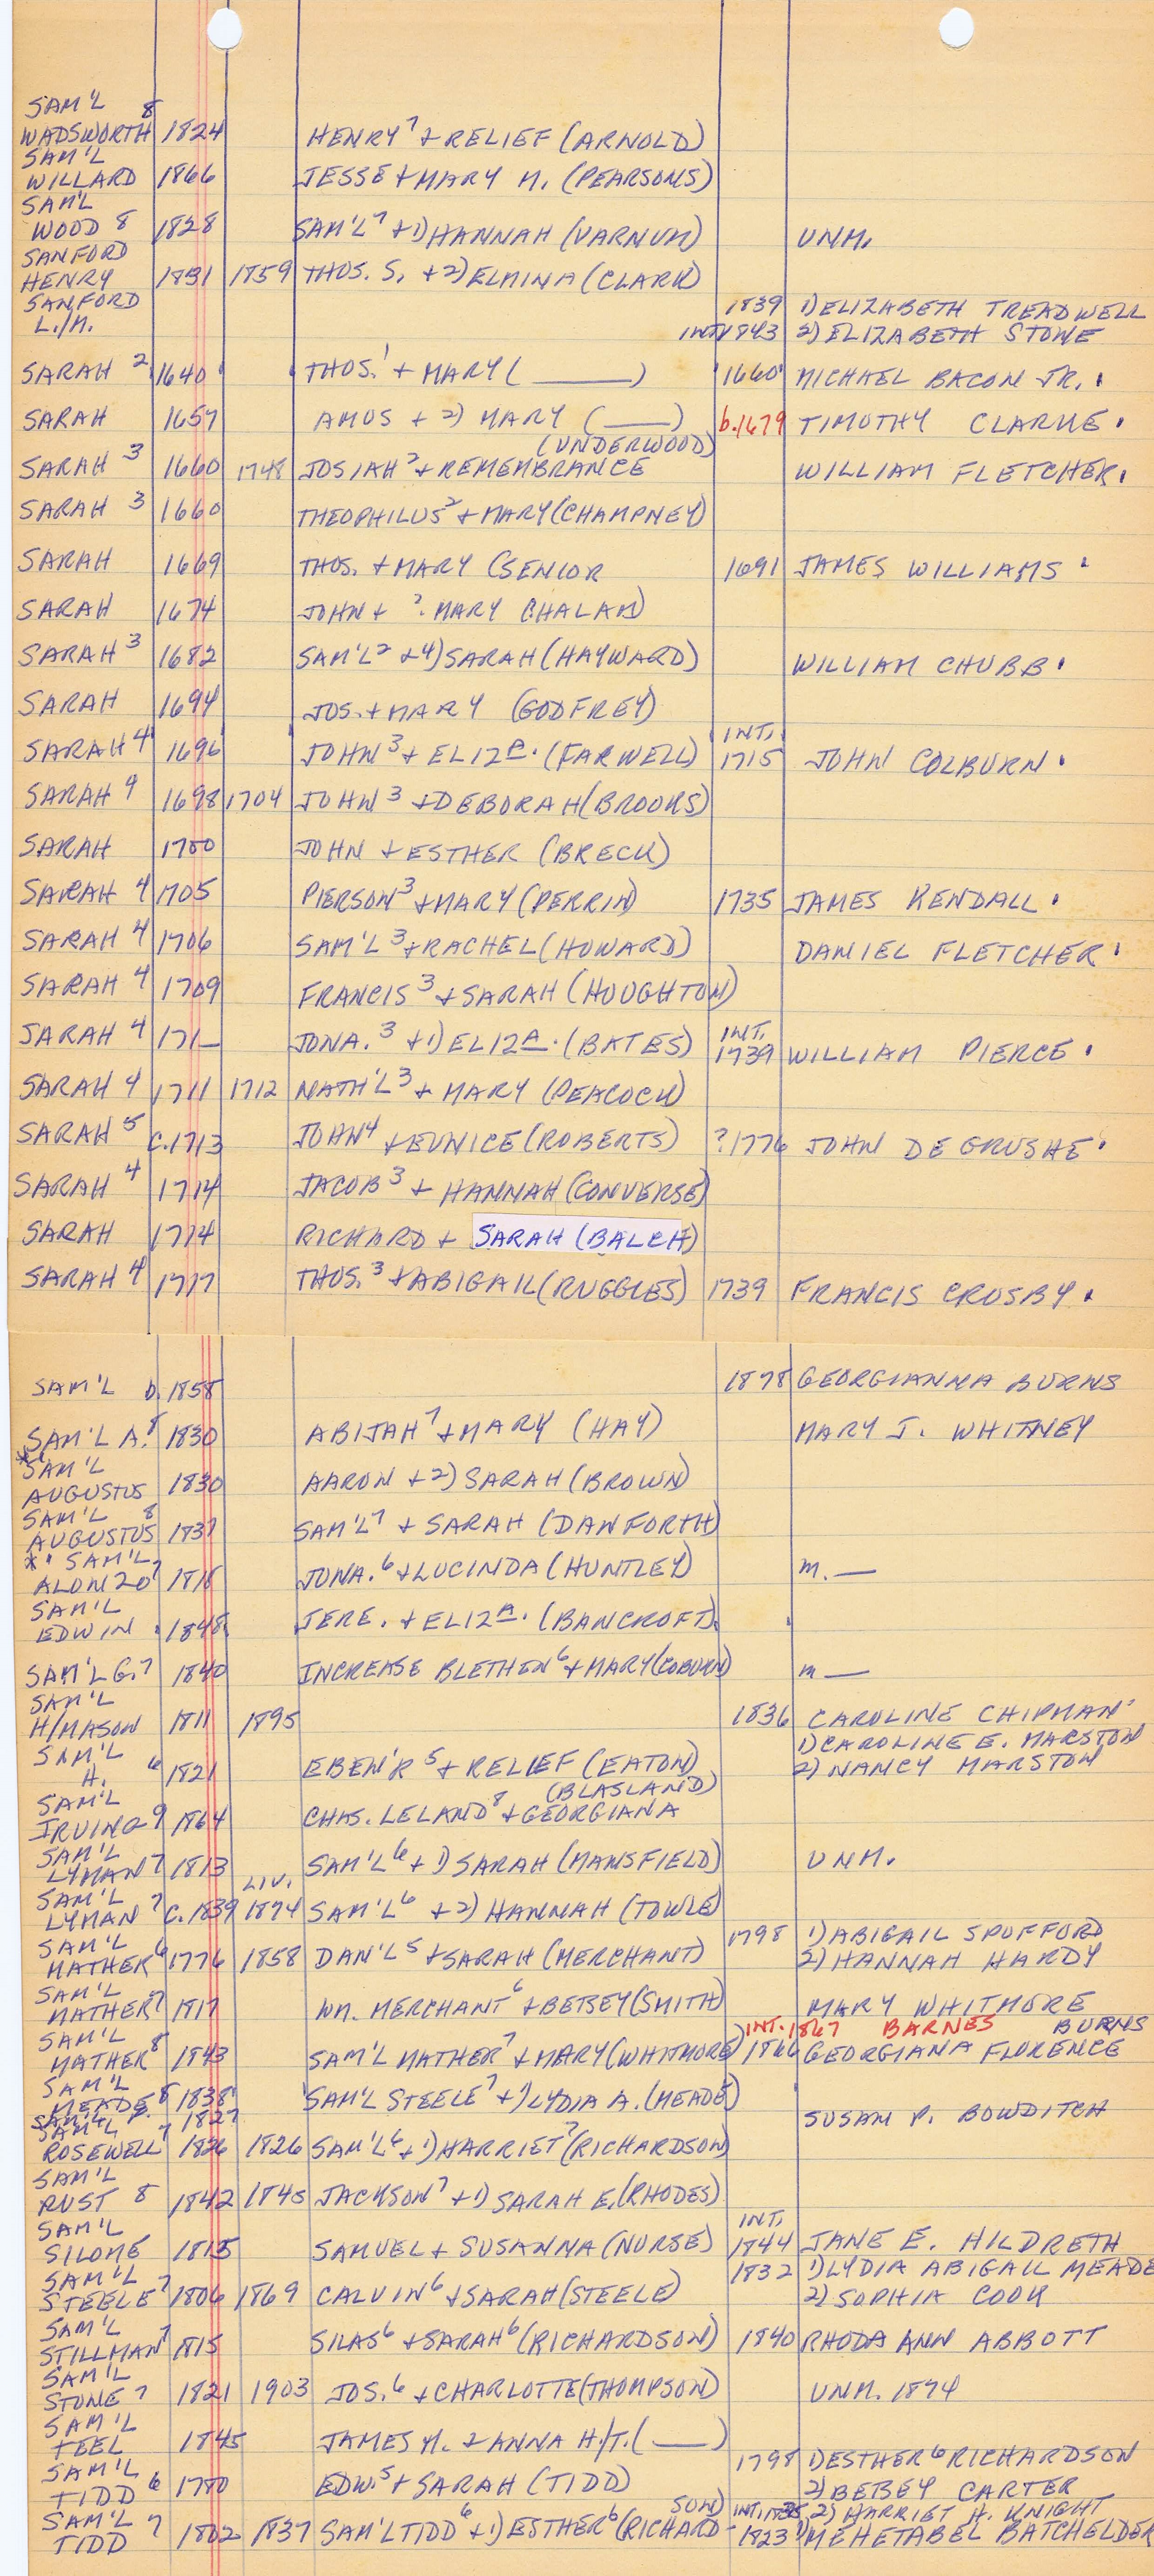 SAM'L
WADSWORTH 8 1824 HENRY 7 + RELIEF (ARNOLD)
SAM'L
WILLARD 1866 JESSE + MARY M. (PEARSONS)
SAM'L
WOOD 8 1828 SAM'L 7 + 1) HANNAH (VARNUM) UNM.
SANFORD
HENRY 1831 1859 THOS. S. + 2) ELMINA (CLARK)
SANFORD 1839 1) ELIZABETH TREADWELL
L./M. INT. 1843 2) ELIZABETH STONE
SARAH 2 1640 THOS. 1 + MARY ( ____ ) 1660 MICHAEL BACON JR.
SARAH 1657 AMOS + 2) MARY ( ____ ) b. 1679 TIMOTHY CLARKE.
(UNDERWOOD)
SARAH 3 1660 1748 JOSIAH 2 + REMEMBRANCE WILLIAM FLETCHER.
SARAH 3 1660 THEOPHILUS 2 + MARY (CHAMPNEY)
SARAH 1669 THOS. + MARY (SENIOR 1691 JAMES WILLIAMS.
SARAH 1674 JOHN + ? MARY CHALAM)
SARAH 3 1682 SAM'L 2 + 4) SARAH (HAYWARD) WILLIAM CHUBB.
SARAH 1694 JOS. + MARY (GODFREY)
INT.
SARAH 4 1696 JOHN 3 + ELIZA. (FARWELL) 1715 JOHN COLBURN.
SARAH 9 1698 1704 JOHN 3 + DEBORAH (BROOKS)
SARAH 1700 JOHN + ESTHER (BRECK)
SARAH 4 1705 PIERSON 3 + MARY (PERRIN) 1735 JAMES KENDALL.
SARAH 4 1706 SAM'L 3 + RACHEL (HOWARD) DANIEL FLETCHER.
SARAH 4 1709 FRANCIS 3 + SARAH (HOUGHTON)
INT.
SARAH 4 171_ JONA. 3 + 1) ELIZA. (BATES) 1739 WILLIAM PIERCE.
SARAH 4 1711 1712 NATH'L 3 + MARY (PEACOCK)
SARAH 5 C. 1713 JOHN 4 + EUNICE (ROBERTS) ? 1776 JOHN DE GRUSHE.
SARAH 4 1714 JACOB 3 + HANNAH (CONVERSE)
SARAH 1714 RICHARD + SARAH (BALCH)
SARAH 4 1717 THOS. 3 + ABIGAIL (RUGGLES) 1739 FRANCIS CROSBY.
SAM'L b. 1858 1878 GEORGIANNA BURNS
SAM'L A. 8 1830 ABIJAH 7 + MARY (HAY) MARY J. WHITNEY
* SAM'L
AUGUSTUS 1830 AARON + 2) SARAH (BROWN)
SAM'L
AUGUSTUS 8 1837 SAM'L 7 + SARAH (DANFORTH)
** SAM'L
ALONZO 7 1818 JONA. 6 + LUCINDA (HUNTLEY) m. __
SAM'L
EDWIN 1848 JERE. + ELIZA. (BANCROFT)
SAM'L G. 7 1840 INCREASE BLETHEN 6 + MARY (COBURN) m __
SAM'L
H/MASON 1811 1895 1836 CAROLINE CHIPMAN
SAM'L 1) CAROLINE E. MARSTON
H. 6 1821 EBEN'R 5 + RELIEF (EATON) 2) NANCY MARSTON
SAM'L (BLASLAND)
IRVING 9 1864 CHAS. LELAND 8 + GEORGIANA
SAM'L
LYMAN 7 1813 SAM'L 6 + 1) SARAH (MANSFIELD) UNM.
SAM'L LIV.
LYMAN 7 C. 1839 1874 SAM'L 6 + 2) HANNAH (TOWLE)
SAM'L 1798 1) ABIGAIL SPOFFORD
MATHER 6 1776 1858 DAN'L 5 + SARAH (MERCHANT) 2) HANNAH HARDY
SAM'L
MATHER 7 1817 WM. MERCHANT 6 + BETSEY (SMITH) MARY WHITMORE
SAM'L INT. 1867 BARNES BURNS
MATHER 8 1843 SAM'L MATHER 7 + MARY (WHITMORE) 1866 GEORGIANA FLORENCE
SAM'L
MEADE 8 1838 SAM'L STEELE 7 + 1) LYDIA A. (MEADE)
SAM'L P. 1827 SUSAN P. BOWDITCH
SAM'L
ROSEWELL 7 1826 1826 SAM'L 6 + 1) HARRIET 7 (RICHARDSON)
SAM'L
RUST 8 1842 1845 JACKSON 7 + 1) SARAH E. (RHODES)
SAM'L INT.
SILOME 1815 SAMUEL + SUSANNA (NURSE) 1844 JANE E. HILDRETH
SAM'L 1832 1) LYDIA ABIGAIL MEADE
STEELE 7 1806 1869 CALVIN 6 + SARAH (STEELE) 2) SOPHIA COOK
SAM'L
STILLMAN 7 1815 SILAS 6 + SARAH 6 (RICHARDSON) 1840 RHODA ANN ABBOTT
SAM'L
STONE 7 1821 1903 JOS. 6 + CHARLOTTE (THOMPSON) UNM. 1874
SAM'L
TEEL 1845 JAMES M. + ANNA H./T. ( ____ )
SAM'L 1798 1) ESTHER 6 RICHARDSON
TIDD 6 1780 EDW. 5 + SARAH (TIDD) 2) BETSEY CARTER
SAM'L SON) INT. 1835 2) HARRIET H. KNIGHT
TIDD 7 1802 1837 SAM'L TIDD 6 + 1) ESTHER 6 (RICHARD- 1823 1) MEHETABEL BATCHELDER